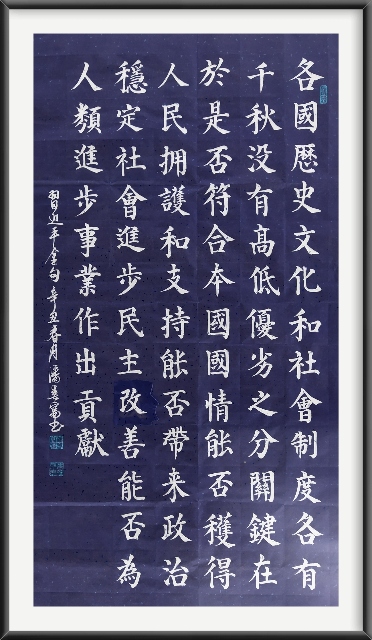 各國歷史文化和社會制度各有
千秋没有髙低優劣之分關鍵在
於是否符合本國國情能否穫得
人民拥護和支持能否帶来政治
穩定社會進步民主改善能否為
人類進步事業作出貢獻
習近平金句辛丑春月潘